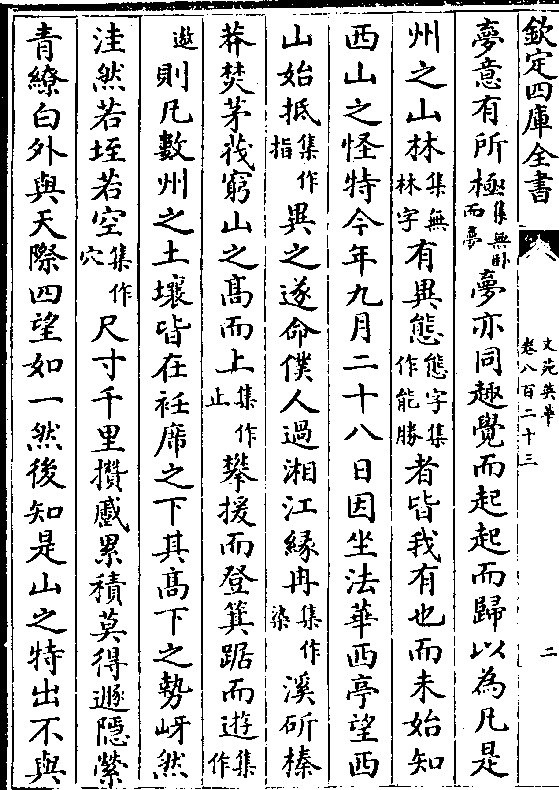 欽定四庫全書
文苑英華
卷八百二十三
二
夢意有所極集無卧而夢夢亦同趣覺而起起而歸以為凡是
州之山林集無林字有異態態字集作能勝者皆我有也而未始知
西山之怪特今年九月二十八日因坐法華西亭望西
山始抵集作指異之遂命僕人過湘江緣冉集作染溪斫榛
莽焚茅茷窮山之髙而上集作止攀援而登箕踞而遊集作
遨則凡數州之土壤皆在衽席之下其髙下之勢岈然
洼然若垤若空集作穴尺寸千里攅蹙累積莫得遯隱縈
青繚白外與天際四望如一然後知是山之特出不與